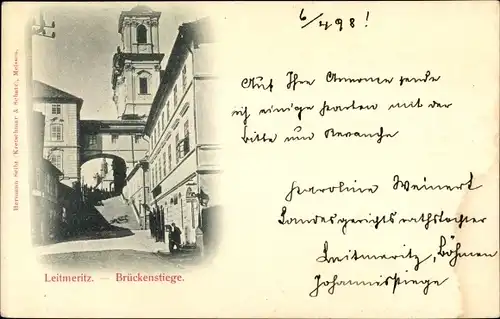 6/4 98!
Auf Ihre Annonce sende
ich einige Karten mit der
Bitte um Revanche
Karoline Weinert
Landesgerichtsrathstochter
Leitmeritz, Böhmen
Johannisstiege
Hermann Seibt (Kretzschmar & Schatz), Meissen.
Leitmeritz. — Brückenstiege.